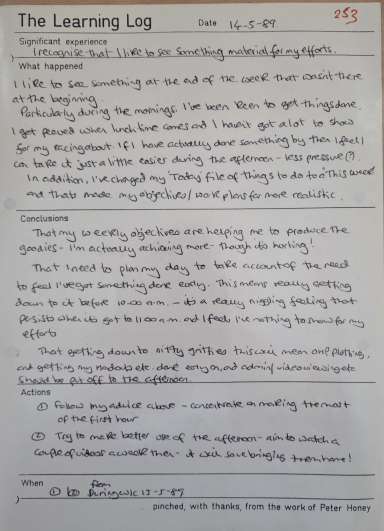 The Learning Log
Date 14-5-89.
253
Significant experience
I recognise that I like to see something material for my efforts.
What happened
I like to see something at the end of the week that wasn't there
at the beginning.
Particularly during the mornings. I've been keen to get things done.
I get peeved when lunch time comes and I haven't got a lot to show
for my racing about. If I have actually done something by then I feel I
can take it just a little easier during the afternoon - less pressure (?).
In addition, I've changed my 'Today' file of things to do to a 'This week'
and that's made my objectives/work plans far more realistic.
Conclusions
That my weekly objectives are helping me to produce the
goodies - I'm actually achieving more - though it's hurting!
That I need to plan my day to take account of the need
to feel I've got something done early. This means really getting
down to it before 10.00 a.m. - it's a really niggling feeling that
persists when it's got to 11.00 a.m. and I feel I've nothing to show for my
efforts
That getting down to nitty gritties this will mean
and getting my handouts etc. done early on, and admin/video viewing etc
should be put off to the afternoon.
Actions
① Follow my advice above - concentrate on making the most
of the first hour
② Try to make better use of the afternoon - aim to watch a
couple of videos a week then - it will save bringing them home!
When
① & ② From
During w/c 15-5-89
pinched, with thanks, from the work of Peter Honey